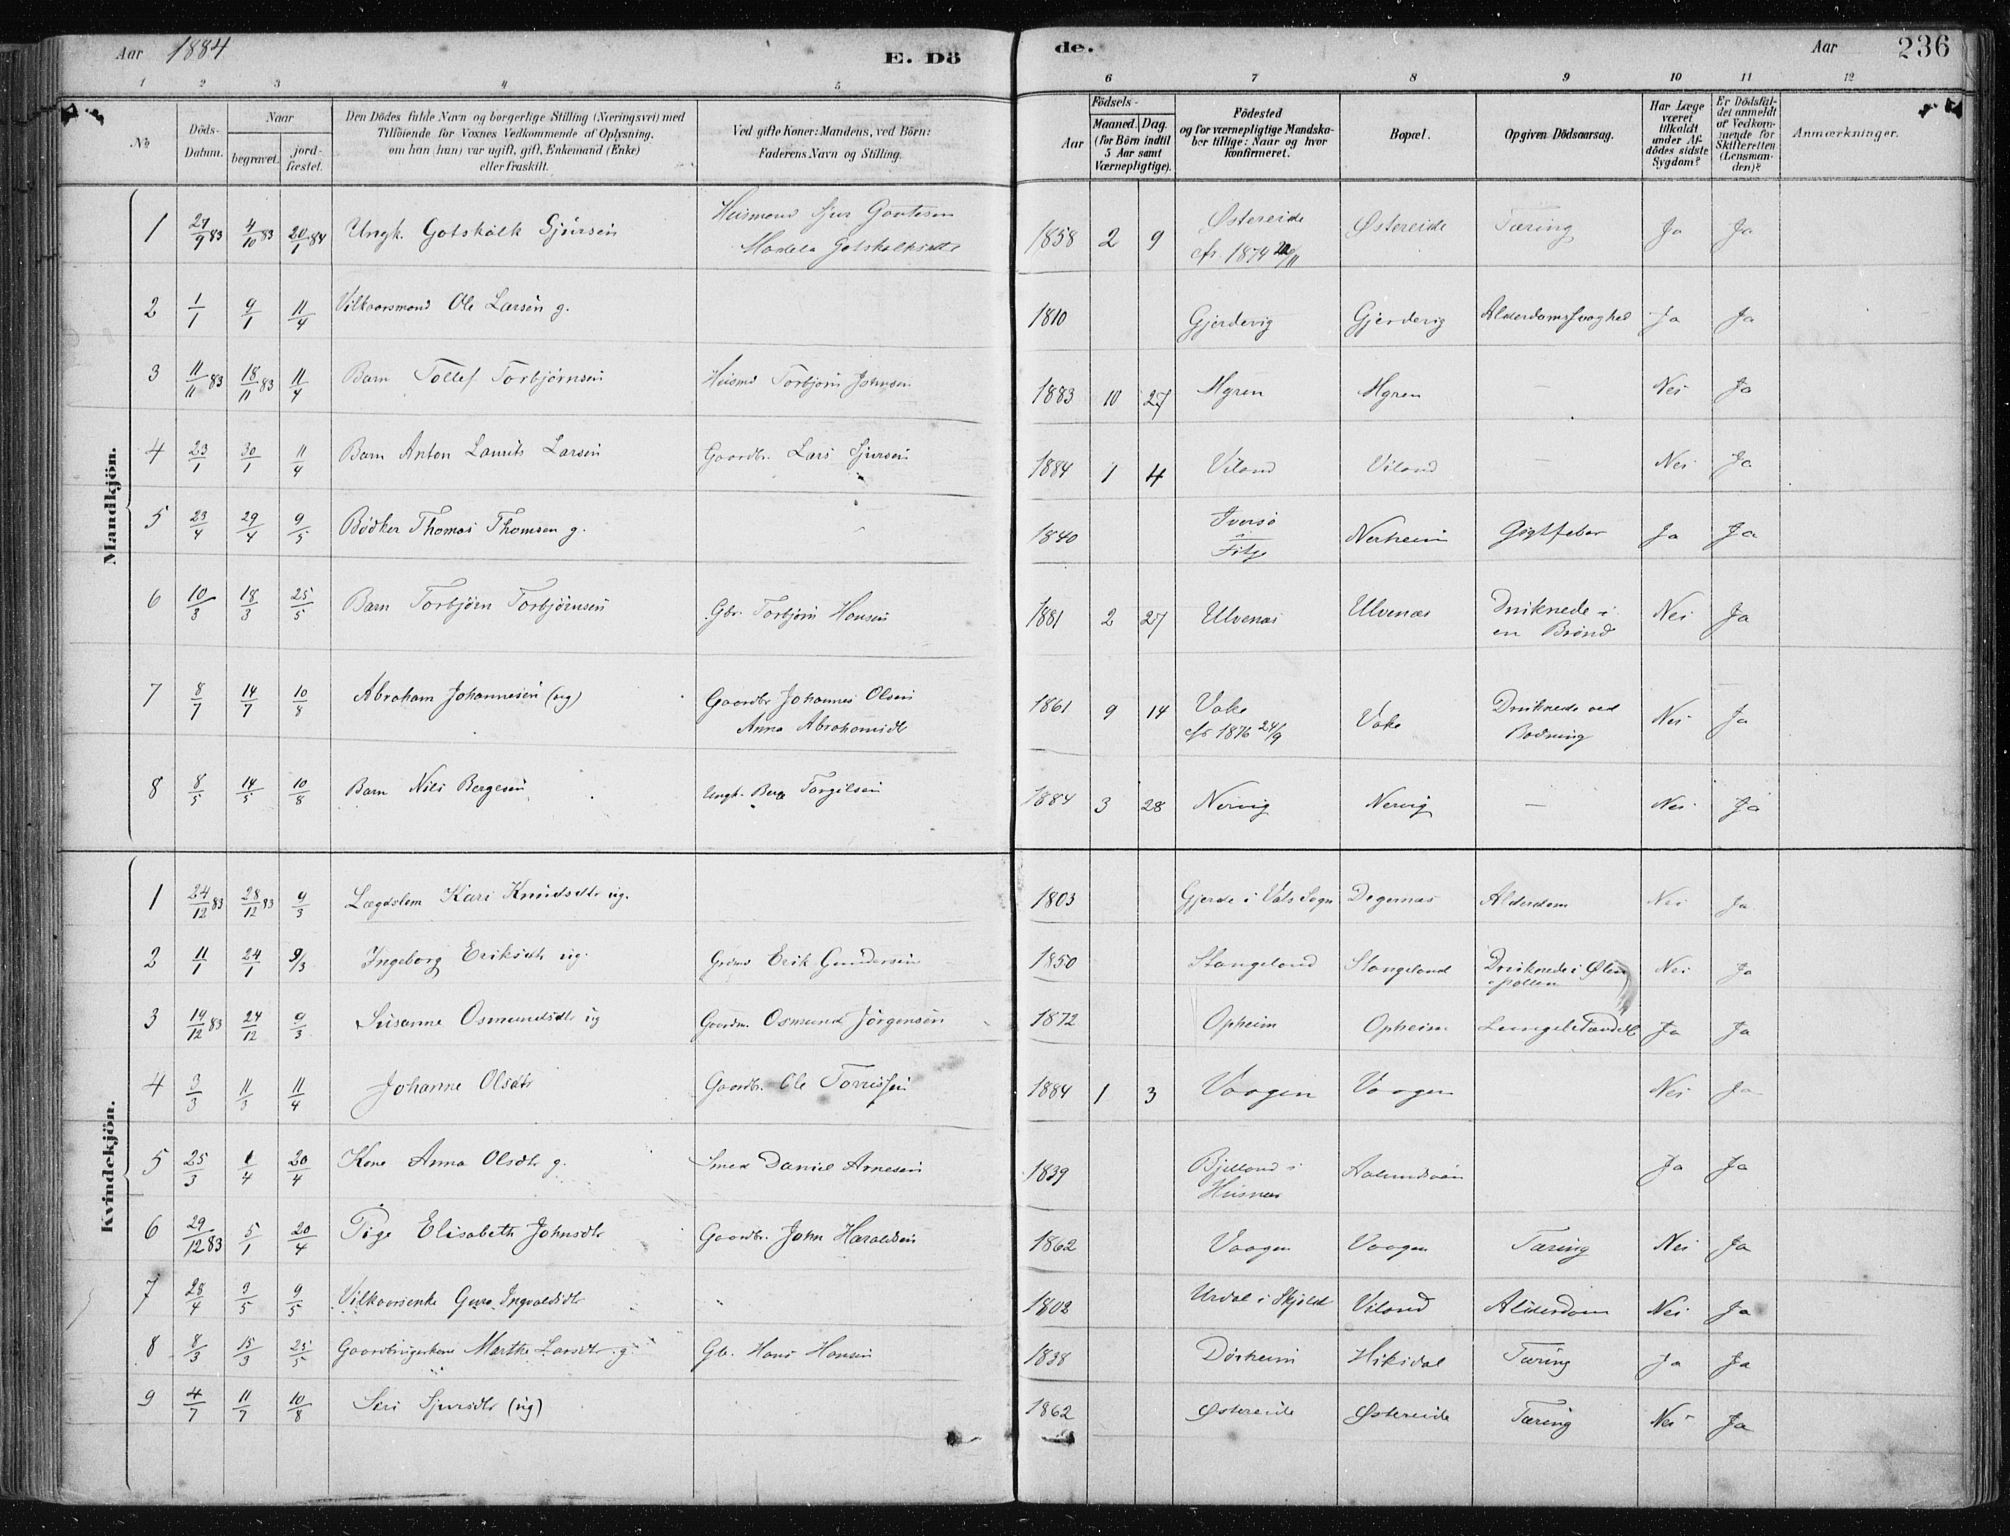 Aar 1884 E. Dö
de. Aar 236
1 2 3 4 5 6 7 8 9 10 11 12
No Döds-Datum. Naar begravet. jordfæstet. Den Dödes fulde Navn og borgerlige Stilling (Næringsvei) med Tilföiende for Voxnes Vedkommende af Oplysning, om han (hun) var ugift, gift, Enkemand (Enke) eller fraskilt. Ved gifte Koner: Mandens, ved Börn: Faderens Navn og Stilling. Aar Födsels- Maaned. Dag. (for Börn indtil 5 Aar samt Værnepligtige). Födested og for værnepligtige Mandskaber tillige: Naar og hvor konfirmeret. Bopæl. Opgiven Dödsaarsag. Har Læge været tilkaldt under Afdödes sidste Sygdom? Er Dödsfaldet anmeldt af Vedkommende for Skifteretten (Lensmanden)? Anmærkninger.
Mandkjön.
1 27/9 83 4/10 83 20/1 84 Ungk. Gotskalk Sjursen Husmand Sjur Gautesen 1858 2 9 Østereide Østereide Tæring Ja Ja
Gotskalksdtr cfr. 1874
2 1/1 9/1 11/4 Vilkaarsmand Ole Larsen g. 1810 Gjerdevig Gjerdevig Alderdomssvaghed Ja Ja
3 11/11 83 18/11 83 11/4 Barn Tollef Torbjörnsen Husmd Torbjörn Johnsen 1883 10 27 Myren Myren — Nei Ja
4 23/1 30/1 11/4 Barn Anton Laurits Larsen Gaardbr. Lars Sjursen 1884 1 4 Viland Viland — Nei Ja
5 23/4 29/4 9/5 Bödker Thomas Thomsen g. 1840 Iversö Nerheim Gigtfeber Ja Ja
Fitje
6 10/3 18/3 25/5 Barn Torbjörn Torbjörnsen Gbr. Torbjörn Hansen 1881 2 27 Ulvenæs Ulvenæs Druknede i Nei Ja
en Brönd
7 8/7 14/7 10/8 Abraham Johannesen (ug) Gaardbr Johannes Olsen 1861 9 14 Vake Vake Druknede ved Nei Ja
Anna Abrahamsdtr cfr 1876 24/9 Badning
8 8/5 14/5 10/8 Barn Nils Bergesen Ungk. Berge Torgilsen 1884 3 28 Nervig Nervig — Nei Ja
Kvindekjön.
1 24/12 83 28/12 83 9/3 Lægdslem Kari Knudsdtr ug. 1803 Gjerde i Vats Sogn Degernæs Alderdom Nei Ja
2 11/1 24/1 9/3 Ingeborg Eriksdtr ug. Grdmd Erik Gundersen 1850 Stangeland Stangeland Druknede i Ølenspollen Nei Ja
3 19/12 83 24/12 9/3 Susanne Osmundsdtr ug Gaardm. Osmund Jörgensen 1872 Opheim Opheim Ja Ja
4 3/3 11/3 11/4 Johanne Olsdtr Gaardbr. Ole Torrissen 1884 1 3 Vaagen Vaagen Nei Ja
5 25/3 1/4 20/4 Kone Anna Olsdtr g. Smed Daniel Arnesen 1839 Bjelland i Ja Ja
Husnæs
6 29/12 83 5/1 20/4 Pige Elisabeth Johnsdtr Gaardbr. John Haraldsen 1862 Vaagen Vaagen Tæring Nei Ja
7 28/4 3/5 9/5 Vilkaarsenke Guro Ingvaldsdtr 1803 Urdal i Skjold Viland Alderdom Nei Ja
8 8/3 15/3 25/5 Gaardbrugerkone Marthe Larsdtr g. Gb. Hans Hansen 1838 Dörheim Hikidal Tæring Ja Ja
9 4/7 11/7 10/8 Siri Sjursdtr (ug) 1862 Østereide Østereide Tæring Nei Ja